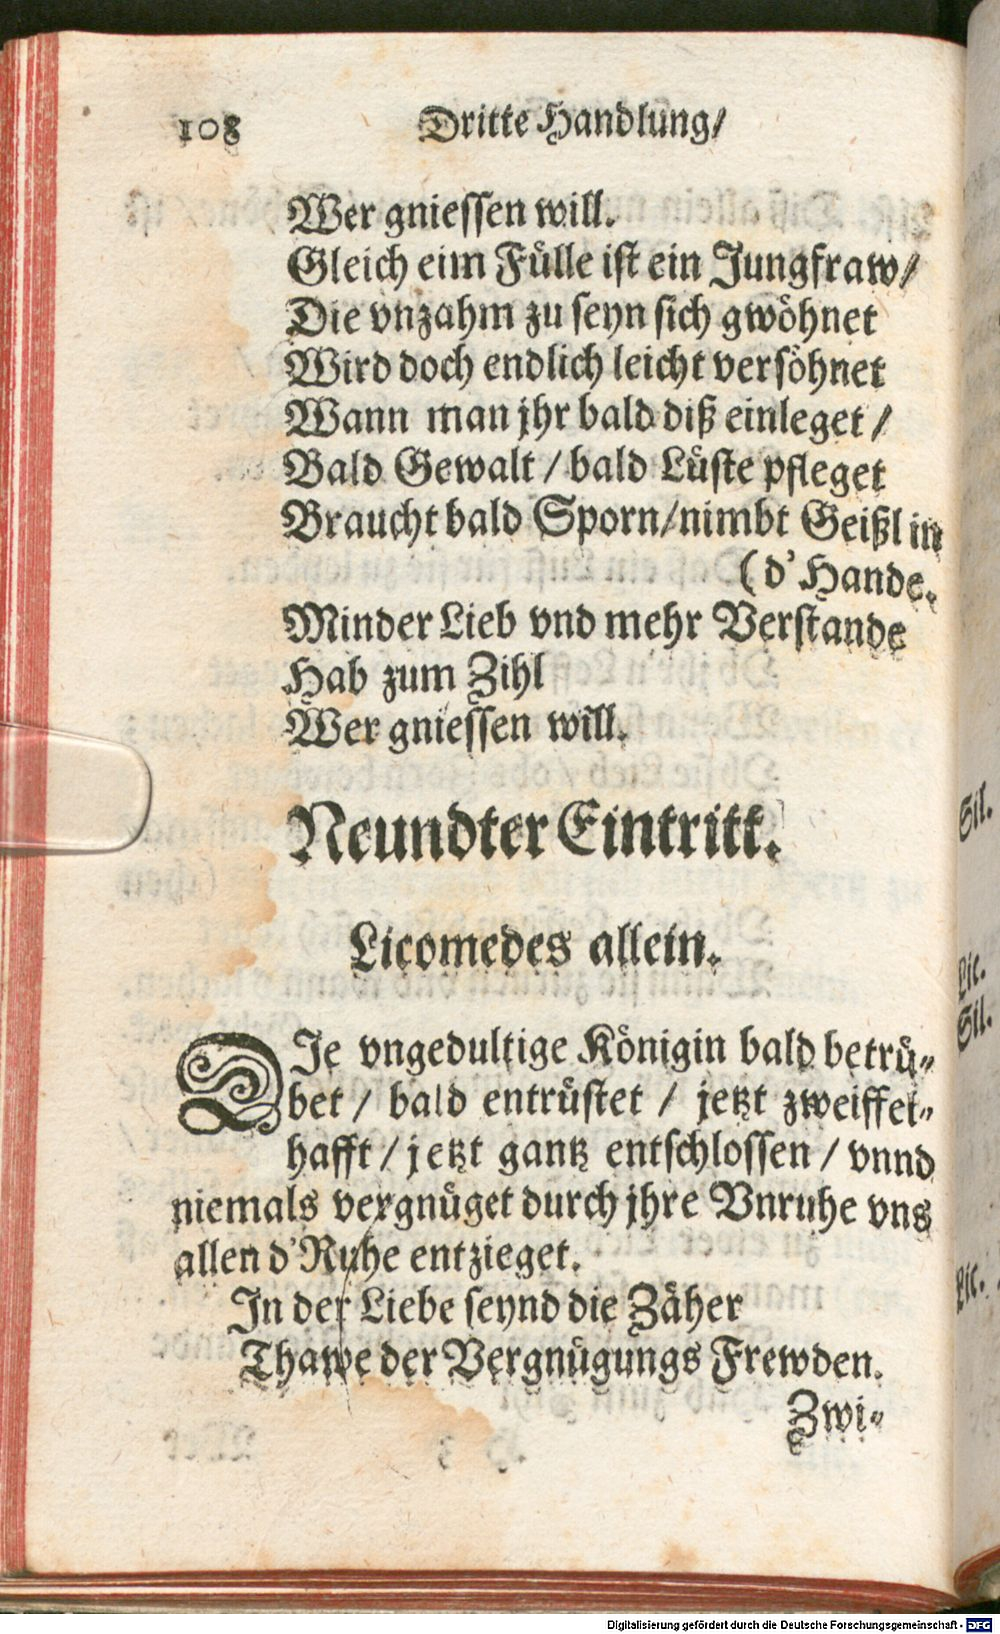 108 Dritte Handlung/
Wer gniessen will.
Gleich eim Fülle ist ein Jungfraw/
Die vnzahm zu seyn sich gwöhnet
Wird doch endlich leicht versöhnet
Wann man jhr bald diß einleget /
Bald Gewalt / bald Lüste pfleget
Braucht bald Sporn/nimbt Geißl in
(d' Hande.
Minder Lieb vnd mehr Verstande
Hab zum Zihl
Wer gniessen will.
Neundter Eintritt.
Licomedes allein.
DIe vngedultige Königin bald betrü-
bet / bald entrüstet / jetzt zweiffel-
hafft / jetzt gantz entschlossen / vnnd
niemals vergnüget durch jhre Vnruhe vns
allen d'Ruhe entzieget.
In der Liebe seynd die Zäher
Thawe der Vergnügungs Frewden.
Zwi-
Sil.
Lic.
Sil.
Lic.
Digitalisierung gefördert durch die Deutsche Forschungsgemeinschaft - DFG